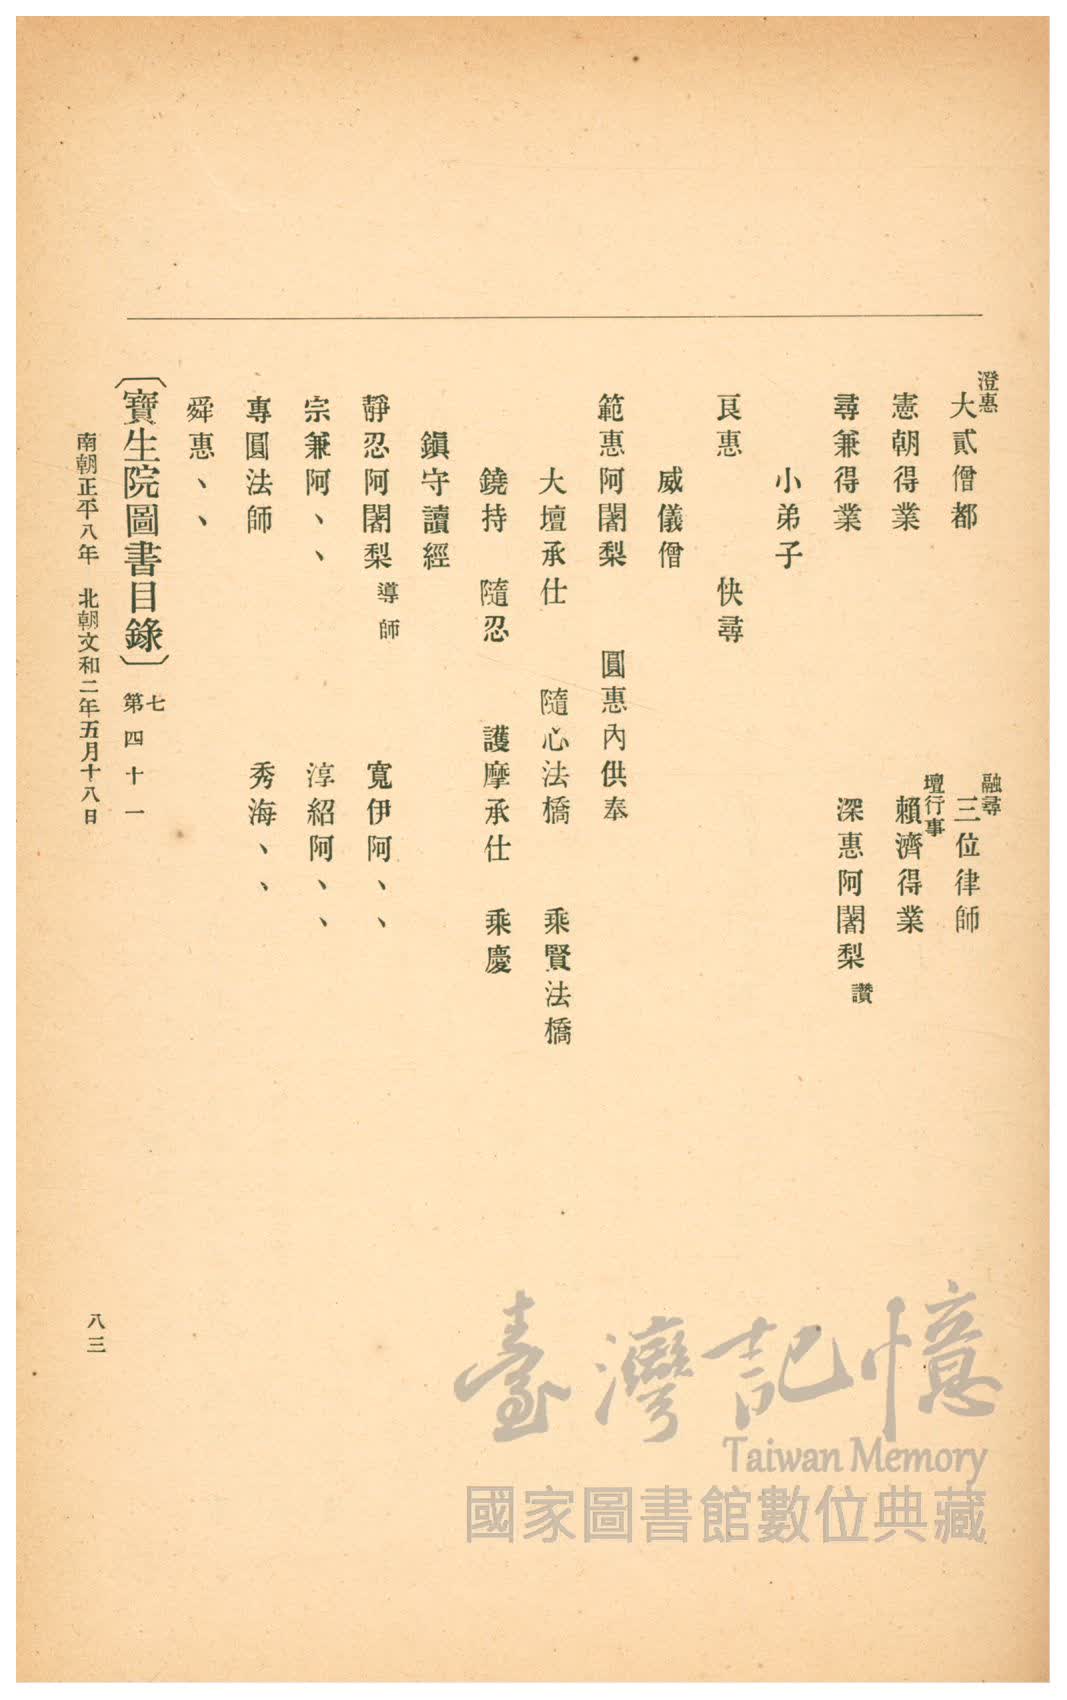 澄惠
大貳僧都
融尋
三位律師
憲朝得業
壇行事
賴濟得業
尋兼得業
深惠阿闍梨 讚
小弟子
良惠 快尋
威儀僧
範惠阿闍梨 圓惠內供奉
大壇承仕 隨心法橋 乘賢法橋
鐃持 隨忍 護摩承仕 乘慶
鎭守讀經
靜忍阿闍梨 導師 寬伊阿、、
宗兼阿、、 淳紹阿、、
專圓法師 秀海、、
舜惠、、
〔寶生院圖書目錄〕 七
第四十一
南朝正平八年 北朝文和二年五月十八日
八三
臺灣記憶
Taiwan Memory
國家圖書館數位典藏